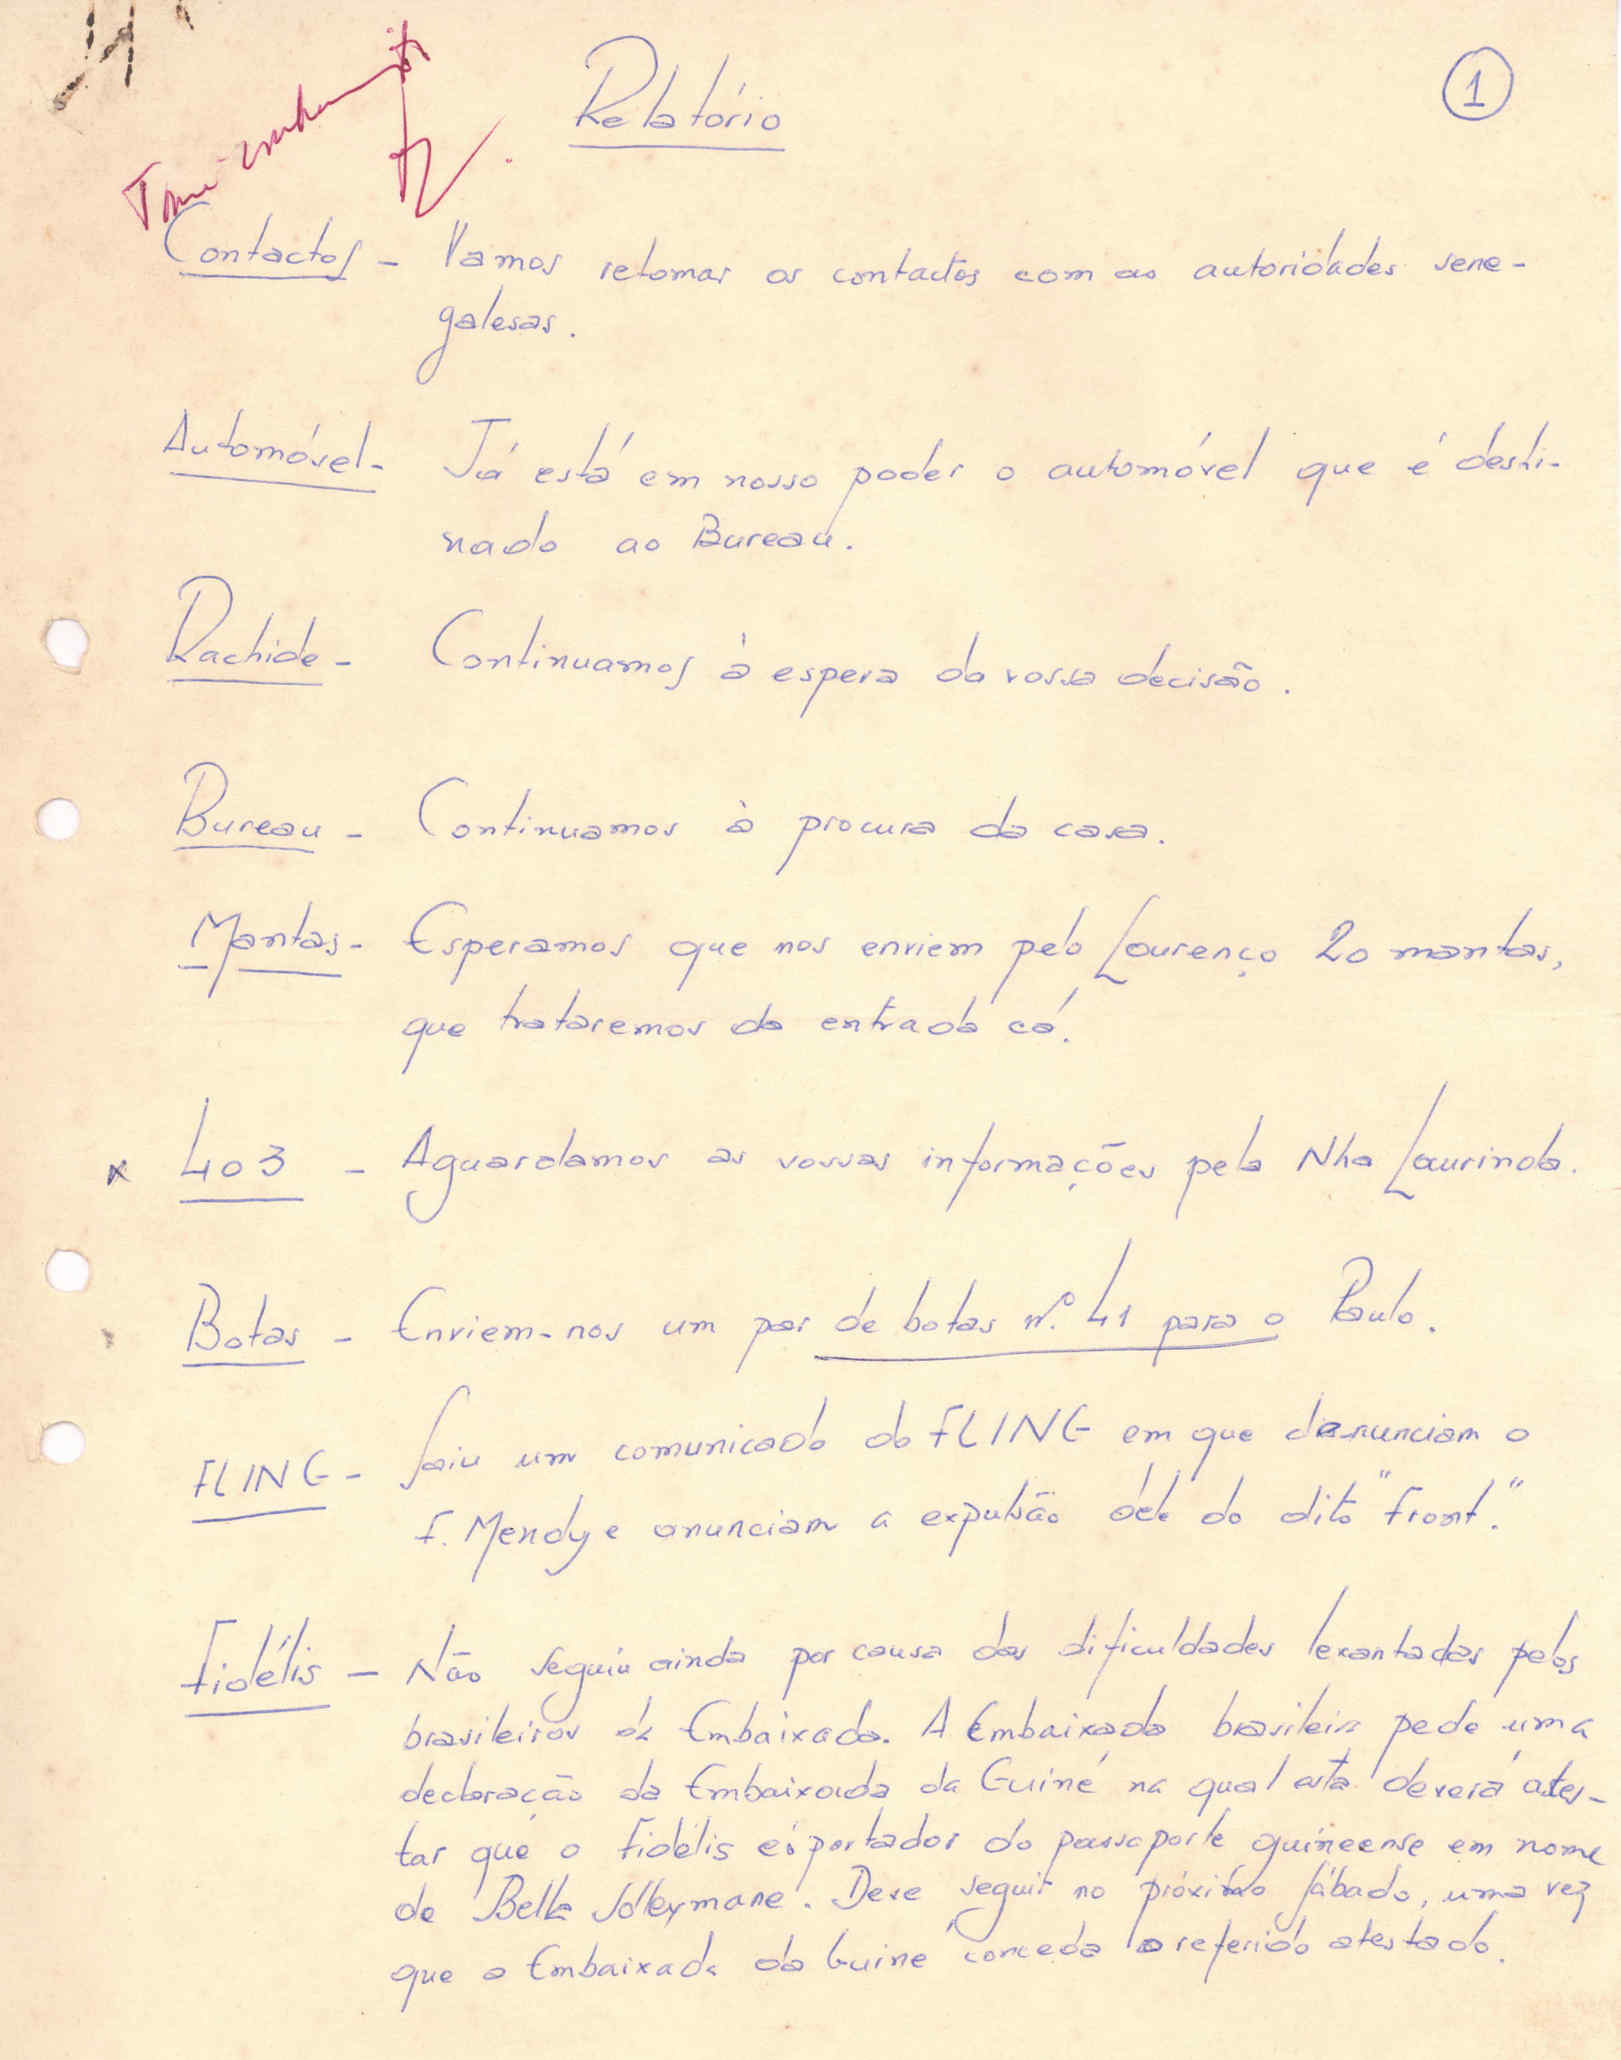 Relatório
1
Contactos - Vamos retomar os contactos com as autoridades sene-
galesas.
Automóvel - Já está em nosso poder o automóvel que é desti-
nado ao Bureau.
Rachide - Continuamos à espera da vossa decisão.
Bureau - Continuamos à procura da casa.
Mantas - Esperamos que nos enviem pelo Lourenço 20 mantas,
que trataremos da entrada cá.
x 403 - Aguardamos as vossas informações pela Nha Laurinda.
Botas - Enviem-nos um par de botas nº. 41 para o Paulo.
FLING - Saiu um comunicado do FLING em que denunciam o
F. Mendy e anunciam a expulsão dele do dito "Front."
Fidélis - Não seguiu ainda por causa das dificuldades levantadas pelos
brasileiros da Embaixada. A Embaixada brasileira pede uma
declaração da Embaixada da Guiné na qual esta deverá ates-
tar que o Fidélis é portador do passaporte guineense em nome
de Bella Soleymane. Deve seguir no próximo Sábado, uma vez
que a Embaixada da Guiné conceda o referido atestado.